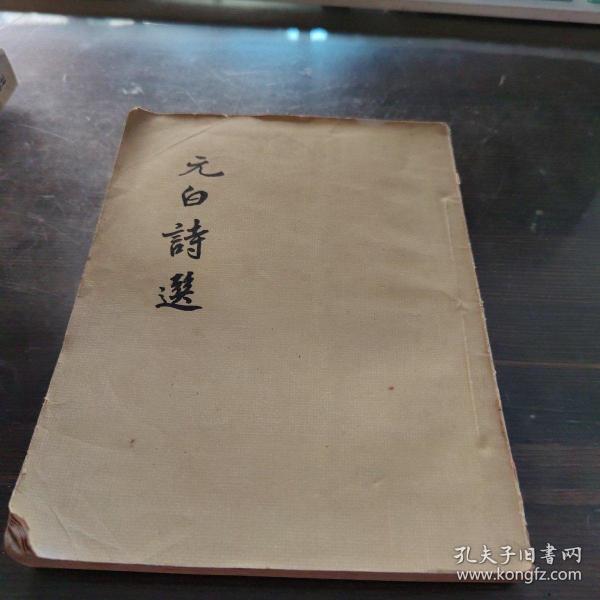 元白詩選
孔夫子旧書网
www.kongfz.com